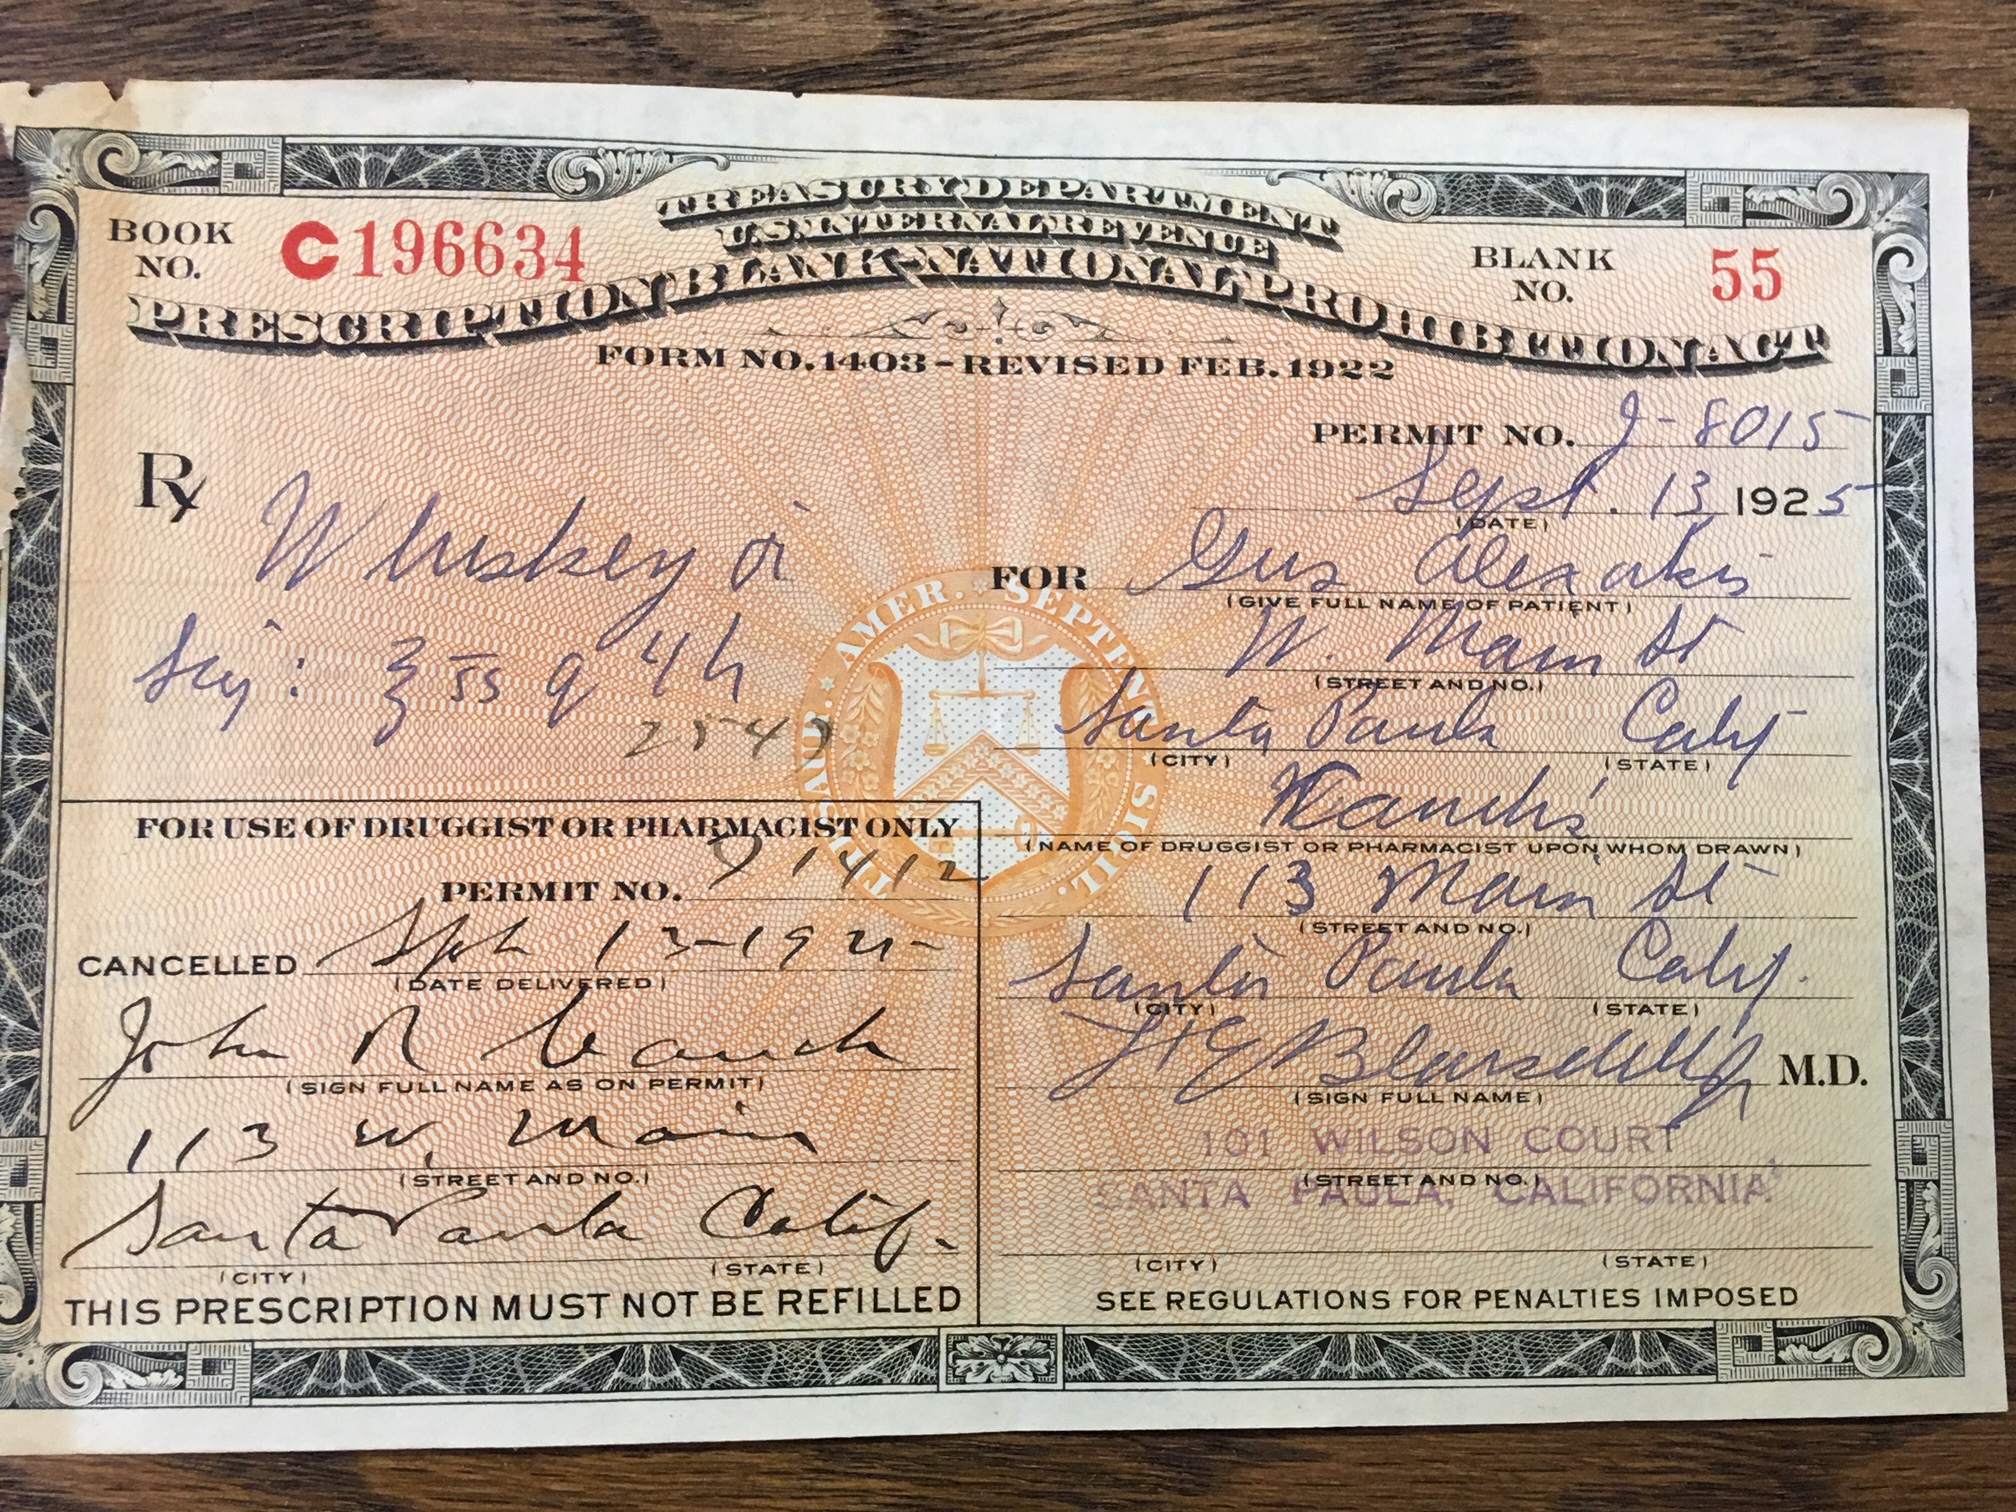 TREASURY DEPARTMENT
U.S. INTERNAL REVENUE
PRESCRIPTION BLANK-NATIONAL PROHIBITION ACT
BOOK NO. C196634
BLANK NO. 55
FORM NO. 1403-REVISED FEB. 1922
PERMIT NO. J-8015
Sept. 13 1925
(DATE)
Rx
Whiskey
Sig: ʒ ss q 4 h
FOR Gus Alexakis
(GIVE FULL NAME OF PATIENT)
W. Main St
(STREET AND NO.)
Santa Paula Calif
(CITY) (STATE)
(NAME OF DRUGGIST OR PHARMACIST UPON WHOM DRAWN)
113 Main St
(STREET AND NO.)
Santa Paula Calif.
(CITY) (STATE)
H E Blaisdell Jr M.D.
(SIGN FULL NAME)
101 WILSON COURT
(STREET AND NO.)
SANTA PAULA, CALIFORNIA
(CITY) (STATE)
SEE REGULATIONS FOR PENALTIES IMPOSED
FOR USE OF DRUGGIST OR PHARMACIST ONLY
PERMIT NO. 1412
CANCELLED Sept 13-1925
(DATE DELIVERED)
John R
(SIGN FULL NAME AS ON PERMIT)
113 W. Main
(STREET AND NO.)
Santa Paula Calif.
(CITY) (STATE)
THIS PRESCRIPTION MUST NOT BE REFILLED
THESAUR. AMER. SEPTENT. SIGIL.